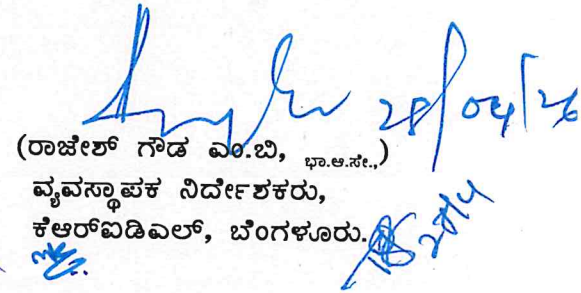 28/04/26
(ರಾಜೇಶ್ ಗೌಡ ಎಂ.ಬಿ, ಭಾ.ಆ.ಸೇ.,)
ವ್ಯವಸ್ಥಾಪಕ ನಿರ್ದೇಶಕರು,
ಕೆಆರ್‌ಐಡಿಎಲ್, ಬೆಂಗಳೂರು.
28/4